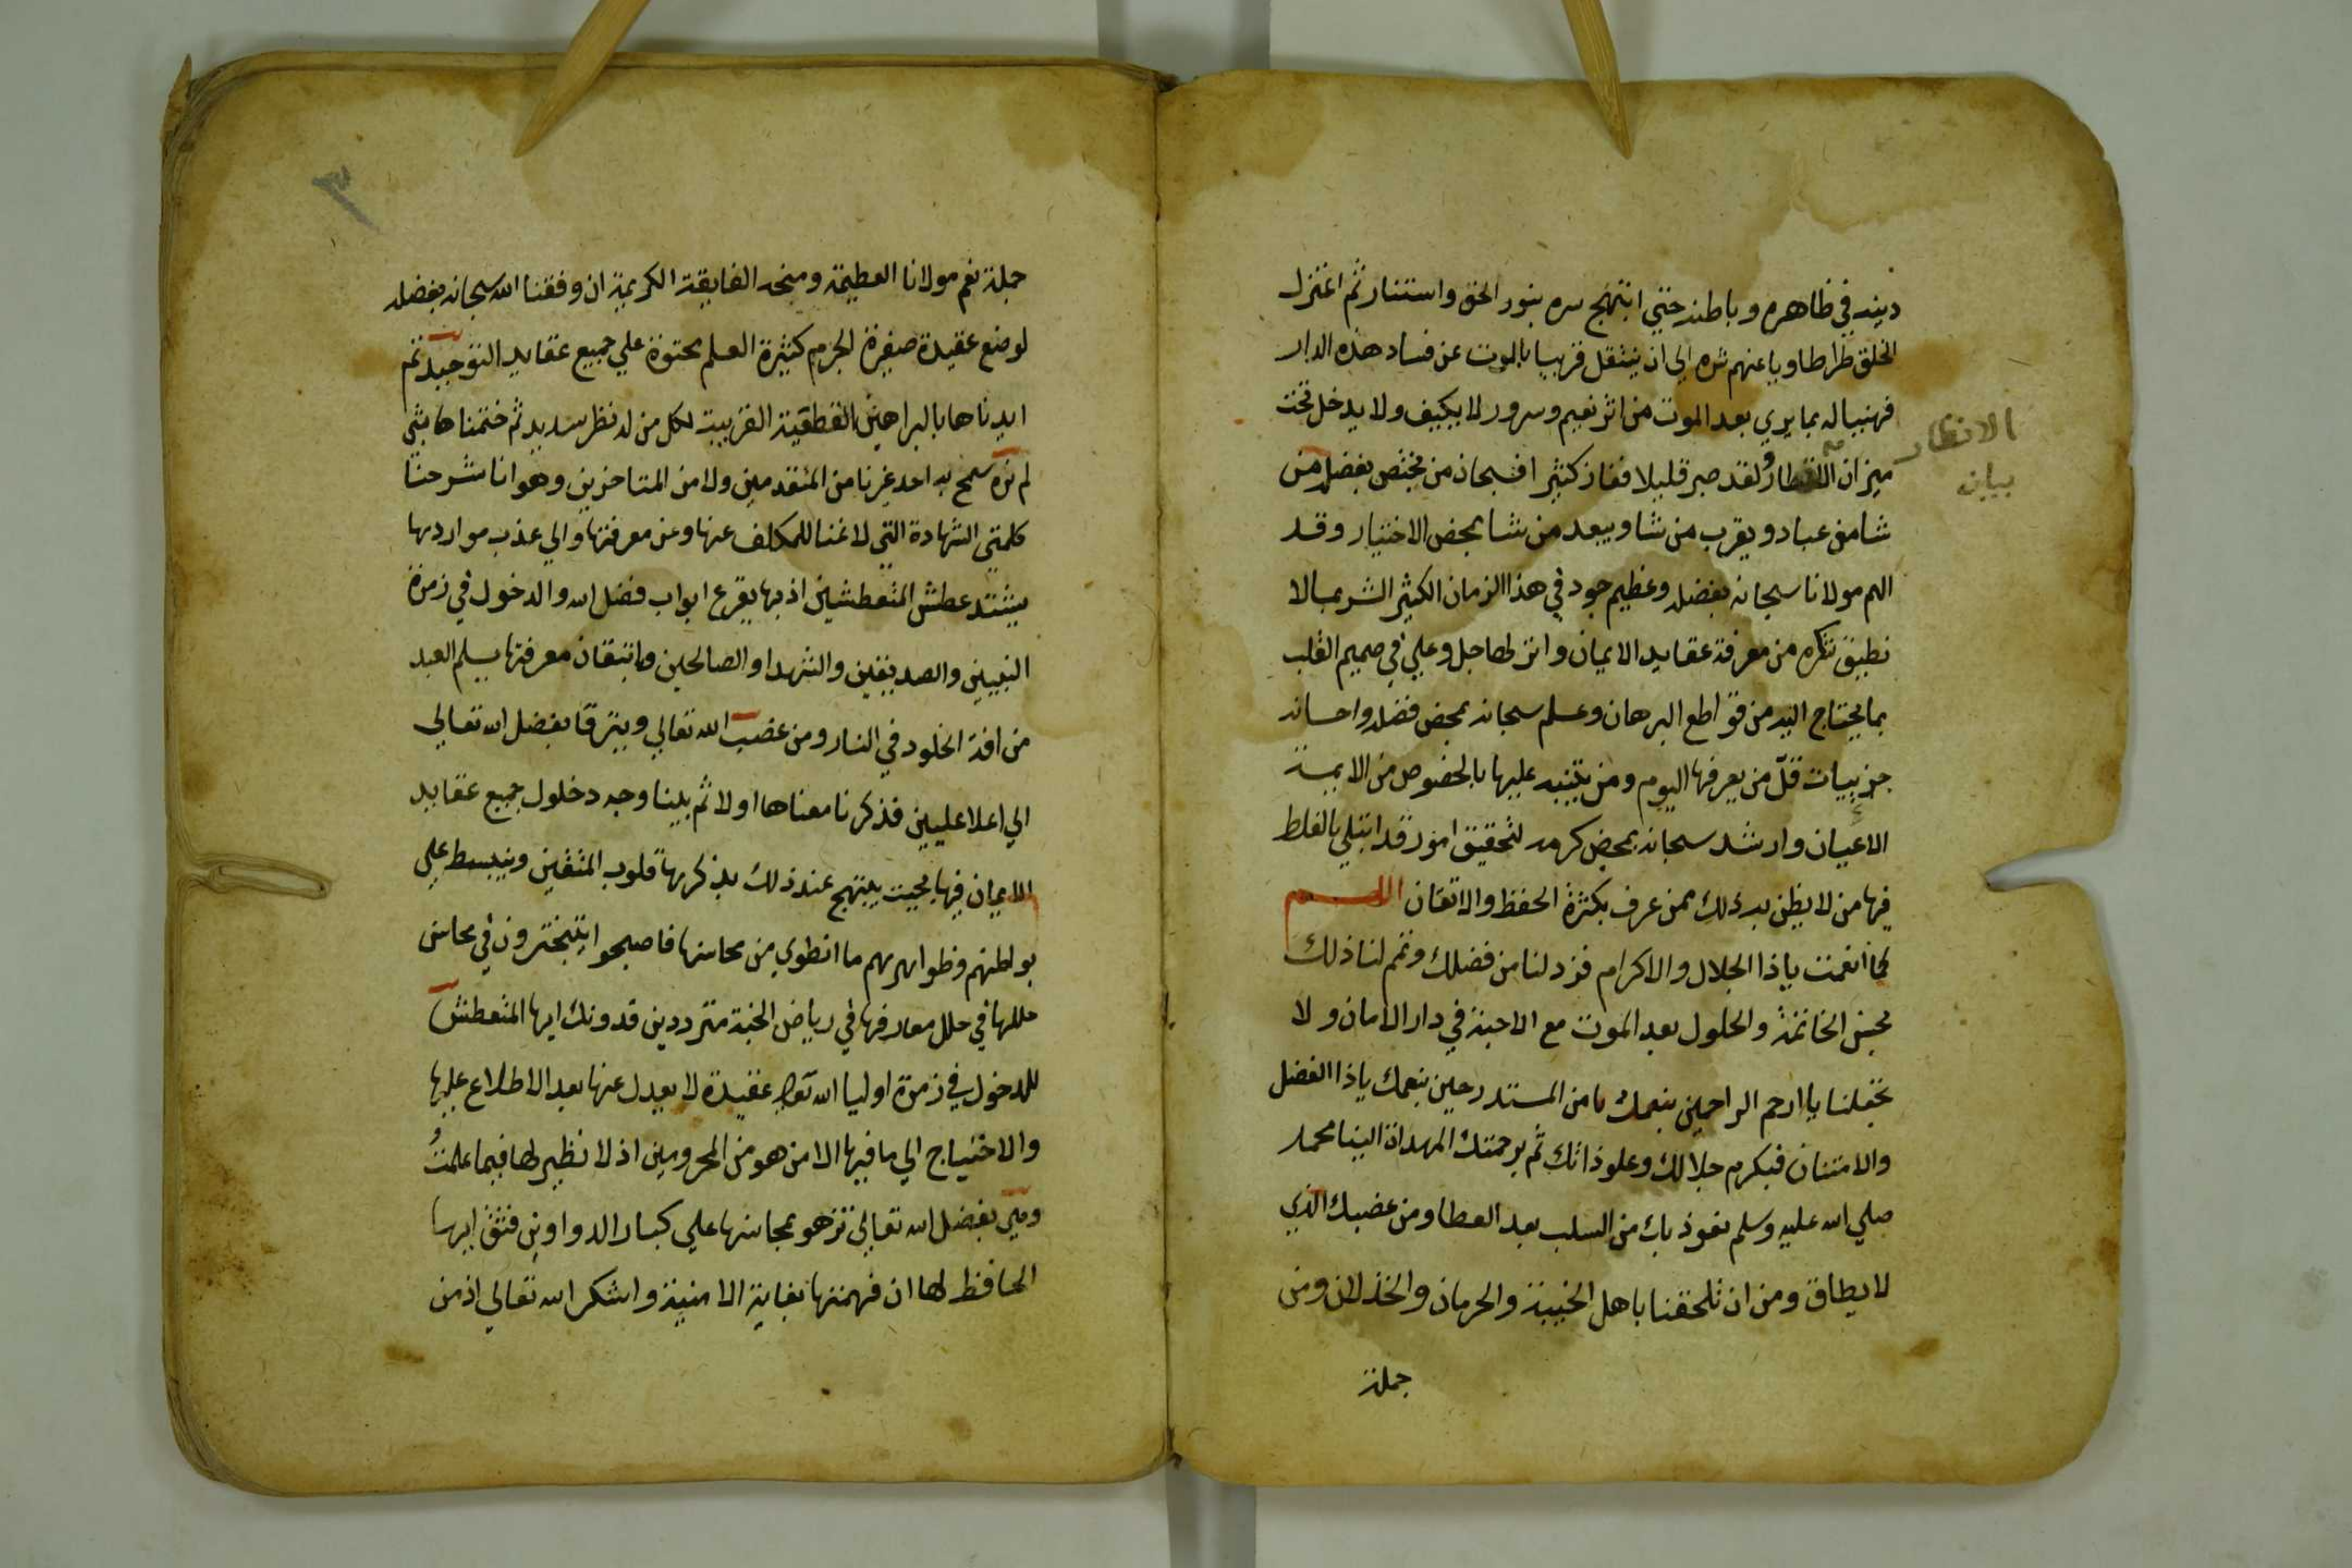 دينه في ظاهره وباطنه حتي ابتهج سره بنور الحق واستنار ثم اعتزل
الخلق طرا طاويا عنهم شره الي ان ينتقل قريبا بالموت عن فساد هذه الدار
فهنيا له بما يري بعد الموت من اثر نعيم وسرور لا يكيف ولا يدخل تحت
ميزان الانظار ولقد صبر قليلا ففاز كثيرا فسبحان من يختص بفضله من
شا من عباده ويقرب من شا ويبعد من شا بمحض الاختيار وقد
الهم مولانا سبحانه بفضله وعظيم جوده في هذا الزمان الكثير الشر بما لا
نطيق شكره من معرفة عقايد الايمان وانزلها جل وعلي في صميم القلب
بما يحتاج اليه من قواطع البرهان وعلم سبحانه بمحض فضله واحسانه
جزييات قلّ من يعرفها اليوم ومن يتنبه عليها بالخصوص من الايمة
الاعيان وارشد سبحانه بمحض كرمه لتحقيق امور قد ابتلي بالغلط
فيها من لا يظن به ذلك ممن عرف بكثرة الحفظ والاتقان اللهم
كما انعمت ياذا الجلال والاكرام فزد لنا من فضلك وتمم لنا ذلك
بحسن الخاتمة والحلول بعد الموت مع الاحبة في دار الامان ولا
تجعلنا يا ارحم الراحمين بنعمك يا من المستدرجين بنعمك ياذا الفضل
والامتنان فبكرم جلالك وعلو ذاتك ثم برحمتك المهداة الينا محمد
صلي الله عليه وسلم نعوذ بك من السلب بعد العطا ومن غضبك الذي
لا يطاق ومن ان تلحقنا باهل الخيبة والحرمان والخذلان ومن
جملة
الانظار
بيان
٣
جملة نعم مولانا العظيمة ومنحه الفايقة الكريمة ان وفقنا الله سبحانه بفضله
لوضع عقيدة صغيرة الجرم كثيرة العلم محتوة علي جميع عقايد التوحيد ثم
ايدناها بالبراهين القطعية القريبة لكل من له نظر سديد ثم ختمناها بشي
لم نره سمح به احد غيرنا من المتقدمين ولا من المتاخرين وهو انا شرحنا
كلمتي الشهادة التي لا غنا للمكلف عنها وعن معرفتها والي عذب مواردها
يشتد عطش المتعطشين اذ بها يقرع ابواب فضل الله والدخول في زمرة
النبيين والصديقين والشهدا والصالحين واتقان معرفتها يسلم العبد
من افة الخلود في النار ومن غضب الله تعالي ويترقا بفضل الله تعالي
الي اعلا عليين فذكرنا معناها اولا ثم بلينا وجه دخلول جميع عقايد
الايمان فيها بحيث يبتهج عند ذلك بذكرها قلوب المتقين وينبسط علي
بواطنهم وظواهرهم ما انطوي من محاسنها فاصبحوا يتبخترون في محاسن
حللها في حلل معارفها في رياض الجنة مترددين فدونك ايها المتعطش
للدخول في زمرة اوليا الله تعالي عقيدة لا يعدل عنها بعد الاطلاع عليها
والاحتياج الي ما فيها الا من هو من المحرومين اذ لا نظير لها فيما علمتُ
وهي بفضل الله تعالي تزهو بمحاسنها علي كبار الدواوين فثق ايها
الحافظ لها ان فهمتها بغاية الامنية واشكر الله تعالي اذ من